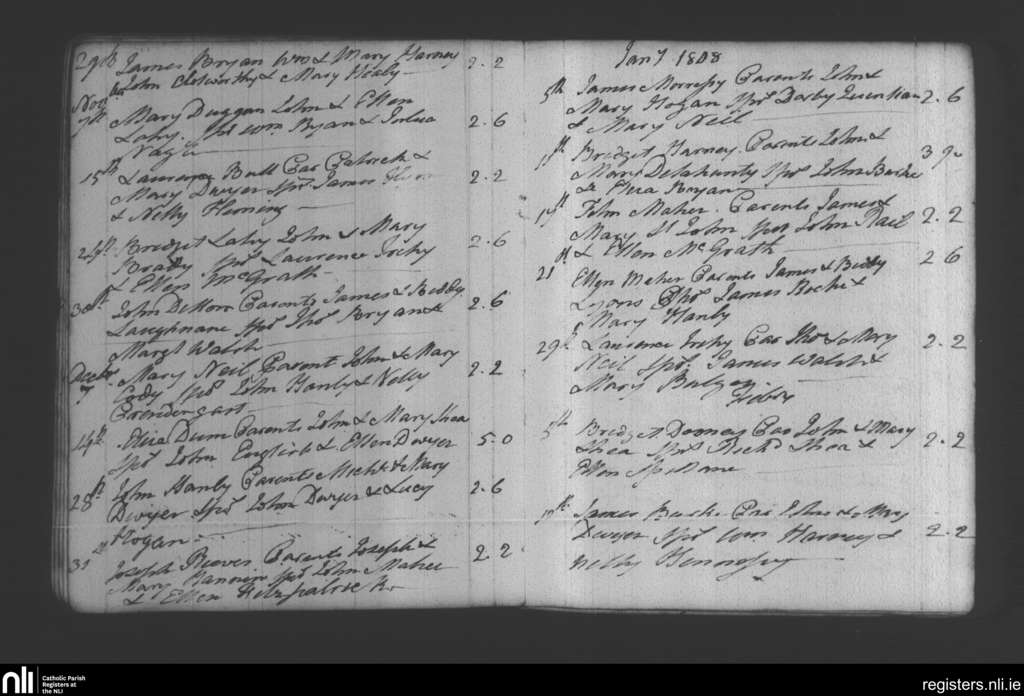 29th James Bryan Wm & Mary Harney 2.2
John Clotworthy & Mary Healy
Novr
7th Mary Duggan John & Ellen
Lahy. Spr Wm Ryan & Julia 2.6
Nagle
15th Laurence Bull Par Patrick &
Mary Dwyer Spr James 2.2
& Nelly Fleming
24th Bridget Lahy John & Mary
Brady Spr Laurence Irehy 2.6
& Ellen McGrath
30th John Parents James & Biddy
Laughnane Spr Thos Bryan & 2.6
Margt Walsh
Decbr
7 Mary Neil Parent John & Mary
Cody Spr John Hanly & Nelly 2.2
Prendergast
14th Eliza Dunn Parents John & Mary Shea
Spr John English & Ellen Dwyer 5.0
28th John Hanly Parents Michl & Mary
Dwyer Spr John Dwyer & Lucy 2.6
Hogan
31 Joseph Parents Joseph & 2 2
Mary Spr John Maher
& Ellen Fitzpatrick
Jany 1808
5th James Morrissy Parents John &
Mary Hogan Spr Darby 2.6
& Mary Neil
Bridget Harney Parents John &
Mary Delahunty Spr John Burke 3 9
& Eliza Bryan
17th John Maher. Parents James &
Mary St John Spr John Neil 2.2
& Ellen McGrath
21th Ellen Meher Parents James & Biddy 2 6
Lyons James &
Mary Hanly
29th Laurence Irehy Par Thos & Mary
Neil Spr. James Walsh & 2.2
Mary
Feby
5th Bridget Dooney Par John & Mary
Shea Spr Richd Shea & 2.2
Ellen
James Burke Par John & Mary
Dwyer Spr Wm Harney & 2.2
Nelly Hennessy
nli
Catholic Parish
Registers at
the NLI
registers.nli.ie